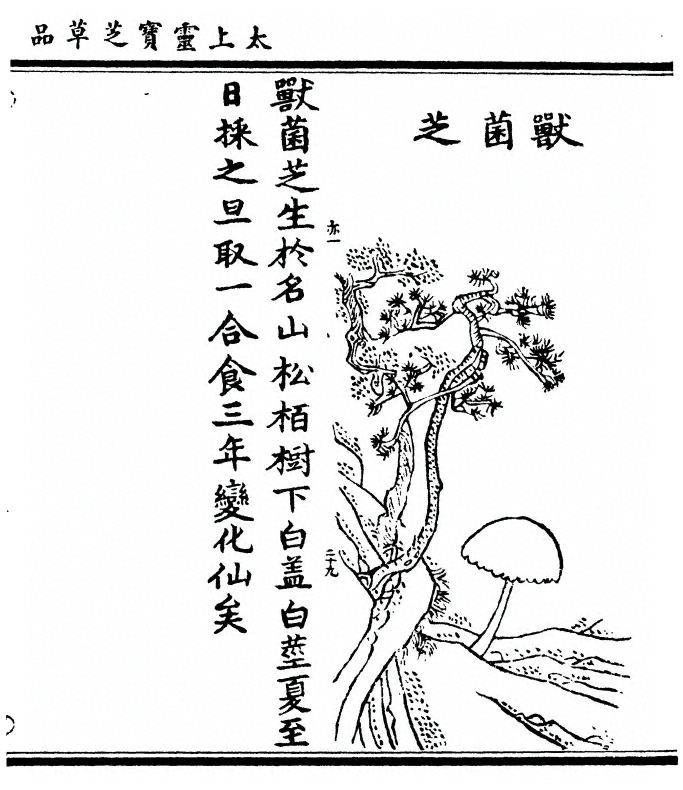 太上靈寶芝草品
獸菌芝
亦一
二十九
獸菌芝生於名山松栢樹下白盖白莖夏至
日採之旦取一合食三年變化仙矣